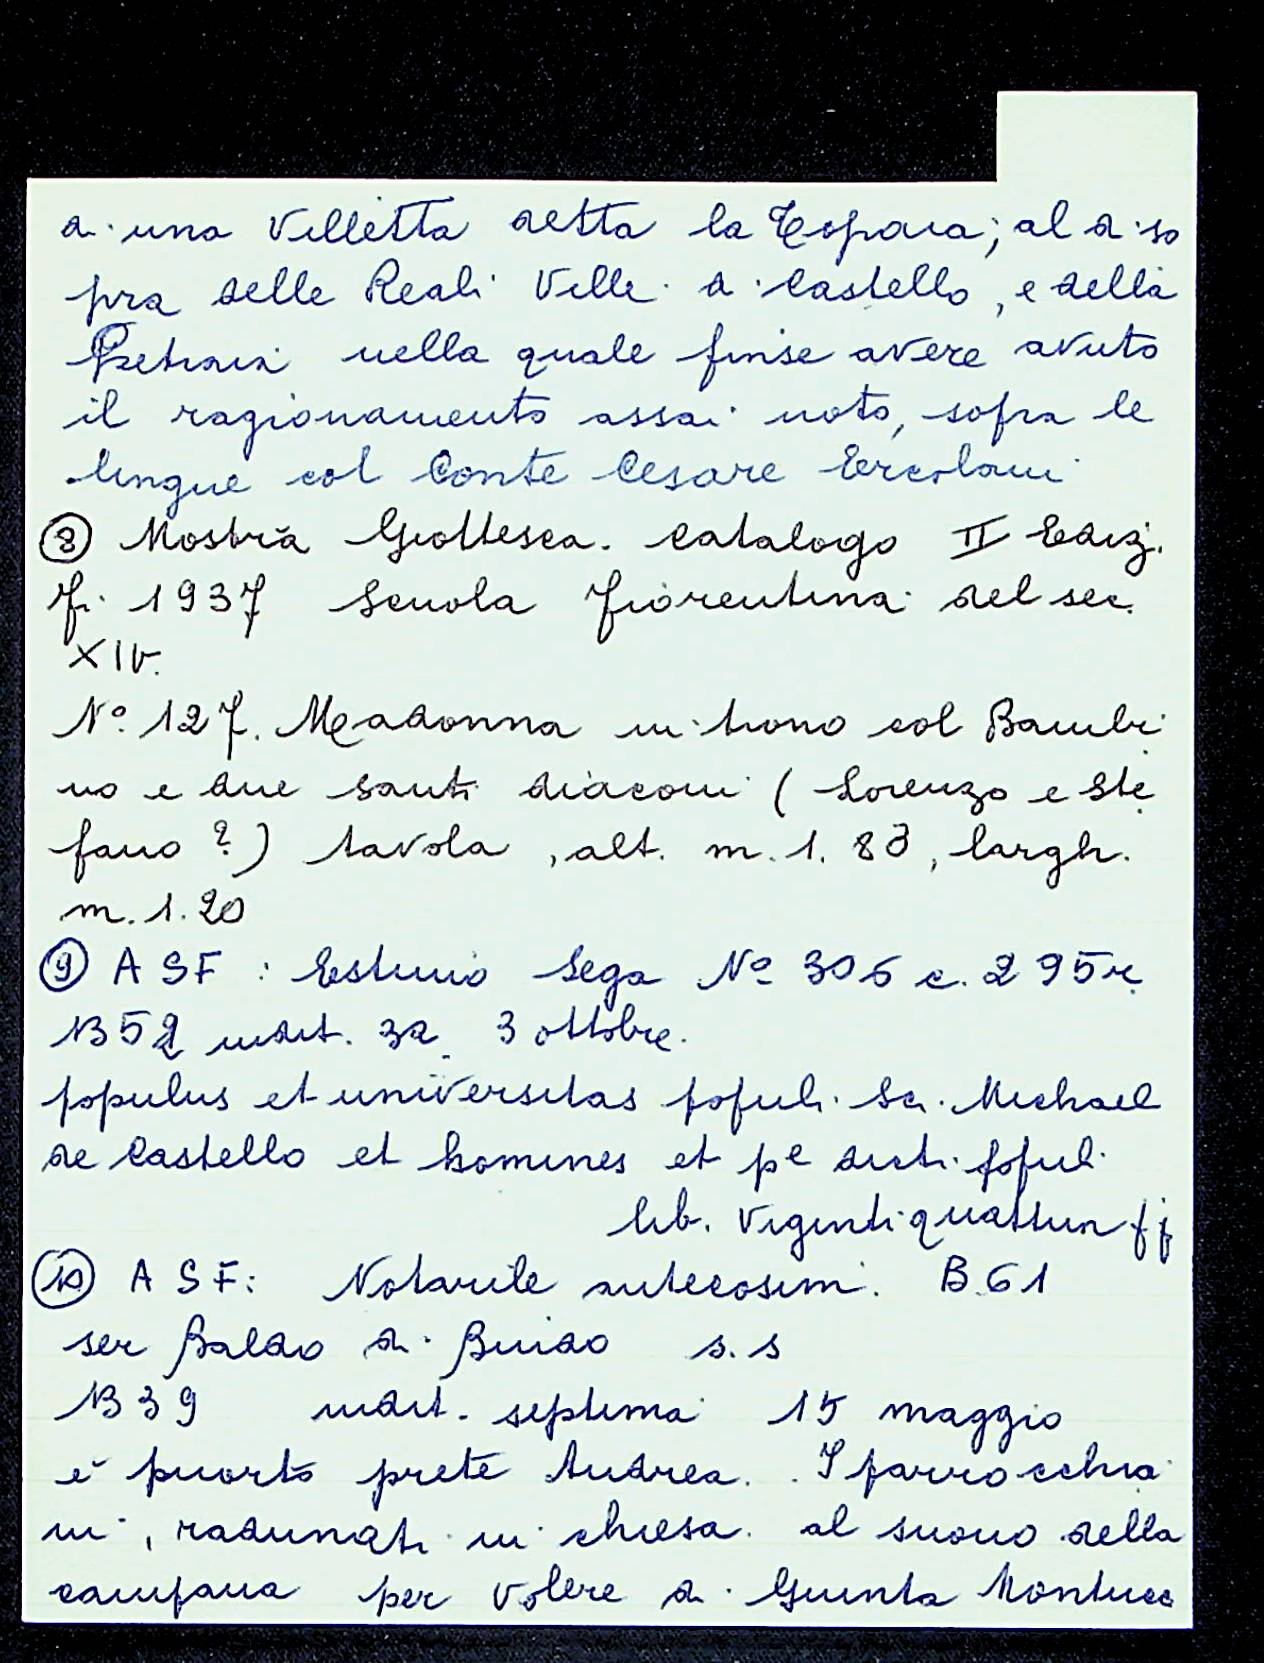 di una Villetta detta la Topaia; al di so
pra delle Reali Ville di Castello, e della
Petraia nella quale finse avere avuto
il ragionamento assai noto, sopra le
lingue col Conte Cesare Ercolani
⑧ Mostra Giottesca. Catalogo II Ediz.
Fi. 1937 Scuola Fiorentina del sec.
XIV.
Nº. 127. Madonna in trono col Bambi
no e due santi diaconi (Lorenzo e Ste
fano ?) tavola, alt. m. 1. 83, largh.
m. 1. 20
⑨ ASF: Estimo Sega Nº 306 c. 295r.
1352 indit. 3a 3 ottobre.
populus et universitas populi Sci. Michael
de Castello et homines et pe dicti populi
lib. Viginti quattuor ff
⑩ ASF: Notarile antecosim. B.61
ser Baldo di Guido s.s
1339 indit. septima 15 maggio
è morto prete Andrea. I parrocchia
ni, radunati in chiesa al suono della
campana per volere di Giunta Montucc